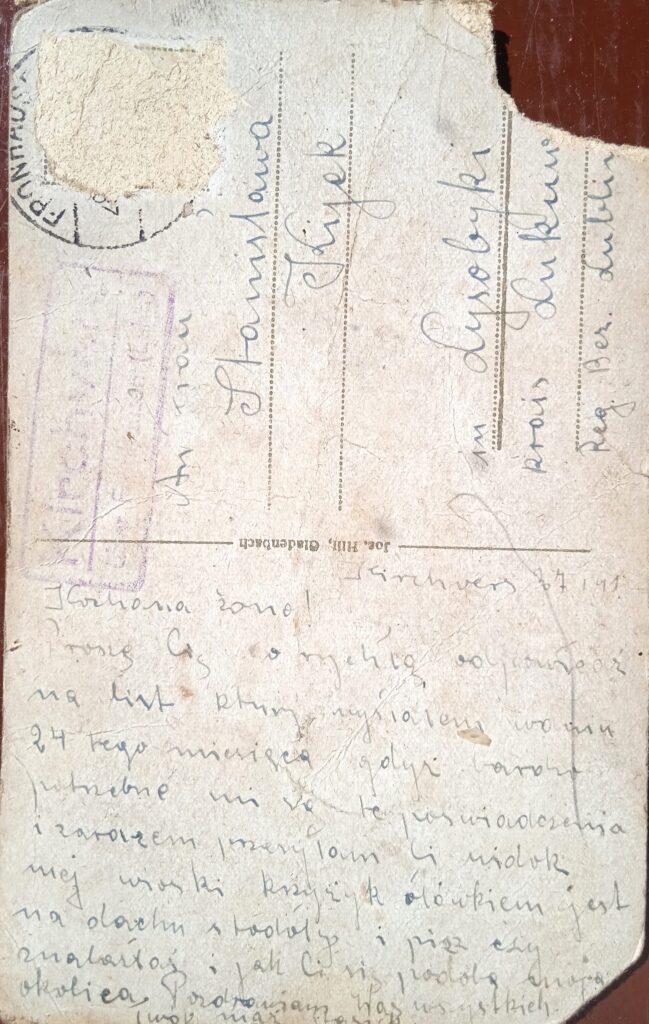 FRONHAUS
An Frau
Stanisława
Kijek
in Łysobyki
krais Łukuw
Reg. Bez. Lublin
Kirchvers
Jos. Hill, Gladenbach
Kirchvers 27
Kochana żono!
Proszę Cię o rychłą odpowiedź
na list który wysłałem wam
24 tego miesiąca gdyż bardzo
potrzebne mi są te poswiadczenia
i zarazem przesyłam Ci widok
mej wioski krzyżyk ołówkiem jest
na dachu stodóły i pisz czy
znalazłaś i jak Ci się podoba moja
okolica Pozdrawiam Was wszystkich
twój mąż